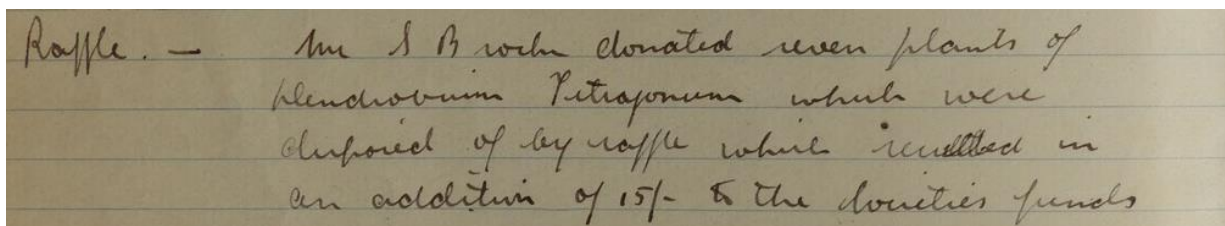 Raffle. — Mr S B donated seven plants of
Dendrobium Tetragonum which were
disposed of by raffle which resulted in
an addition of 15/- to the Societies funds